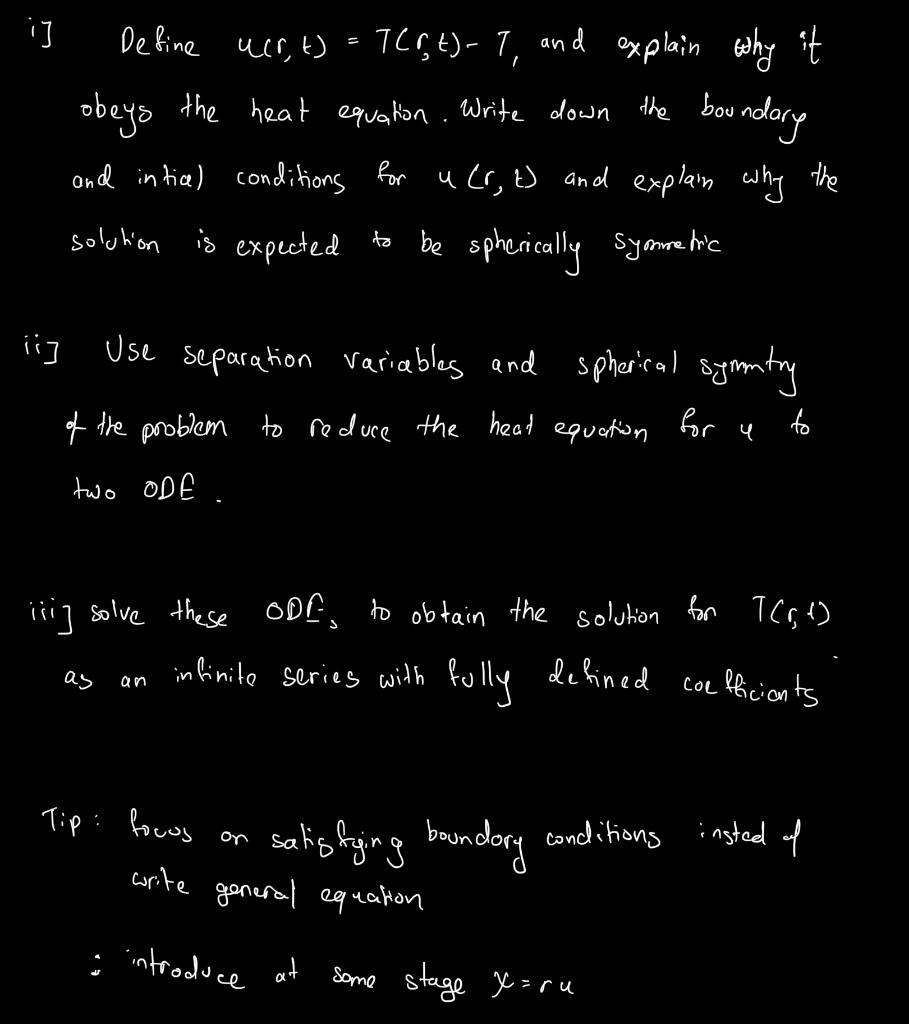 i] Define u(r,t) = T(r,t) - T, and explain why it
obeys the heat equation. Write down the boundary
and intial conditions for u(r,t) and explain why the
solution is expected to be spherically symmetric
ii] Use separation variables and spherical symmtry
of the problem to reduce the heat equation for u to
two ODE.
iii] solve these ODEs to obtain the solution for T(r,t)
as an infinite series with fully defined coefficients
Tip: focus on satisfying boundary conditions insted of
write general equation
: introduce at some stage X = ru